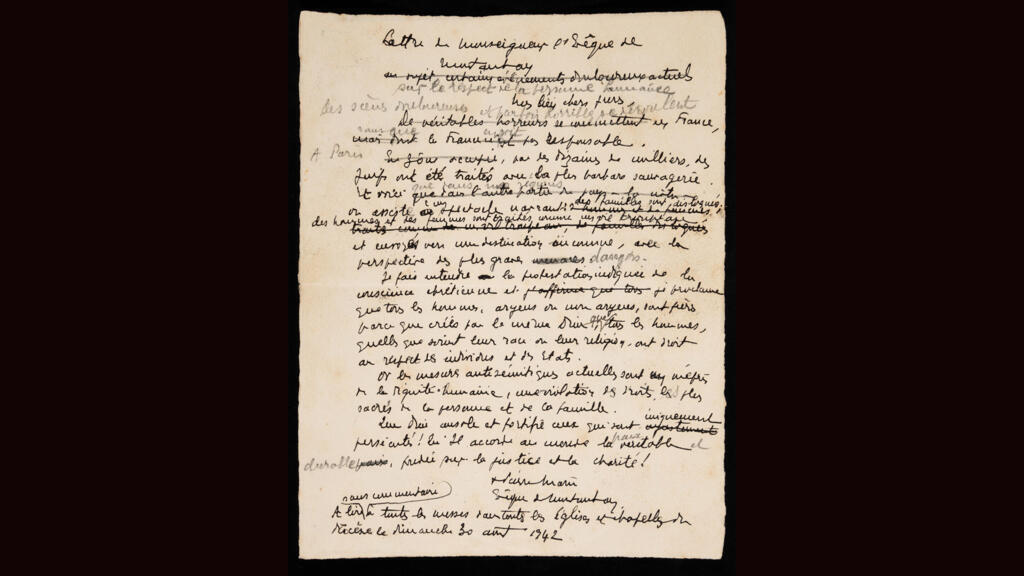 Lettre de Monseigneur l'Evêque de
Montauban
au sujet certains évènements douloureux actuels
sur le respect de la personne humaine
Mes bien chers frères
des scènes douloureuses et parfois horribles se déroulent
De véritables horreurs se commettent en France,
sans que ait
mais dont la France n'est pas responsable.
A Paris
En zône occupée, par des dizaines de milliers, des
juifs ont été traités avec la plus barbare sauvagerie.
que dans nos régions
Et voici que dans l'autre partie du pays
on assiste à un spectacle navrant : des familles sont disloquées.
des hommes et des femmes sont traités comme un vil troupeau
et envoyés vers une destination inconnue, avec la
perspective des plus graves menaces dangers.
Je fais entendre la protestation indignée de la
conscience chrétienne et j'affirme que tous je proclame
que tous les hommes, aryens ou non aryens, sont frères
parce que créés par le même Dieu, que tous les hommes,
quelles que soient leur race ou leur religion, ont droit
au respect des individus et des Etats.
Or les mesures antisémitiques actuelles sont un mépris
de la dignité humaine, une violation des droits les plus
sacrés de la personne et de la famille.
iniquement
Que Dieu console et fortifie ceux qui sont injustement
persécutés ! Qu'Il accorde au monde la paix véritable et
durable paix, fondée sur la justice et la charité !
+ Pierre Marie
Evêque de Montauban
sans commentaire
A lire à toutes les messes dans toutes les églises et chapelles du
diocèse le dimanche 30 août 1942